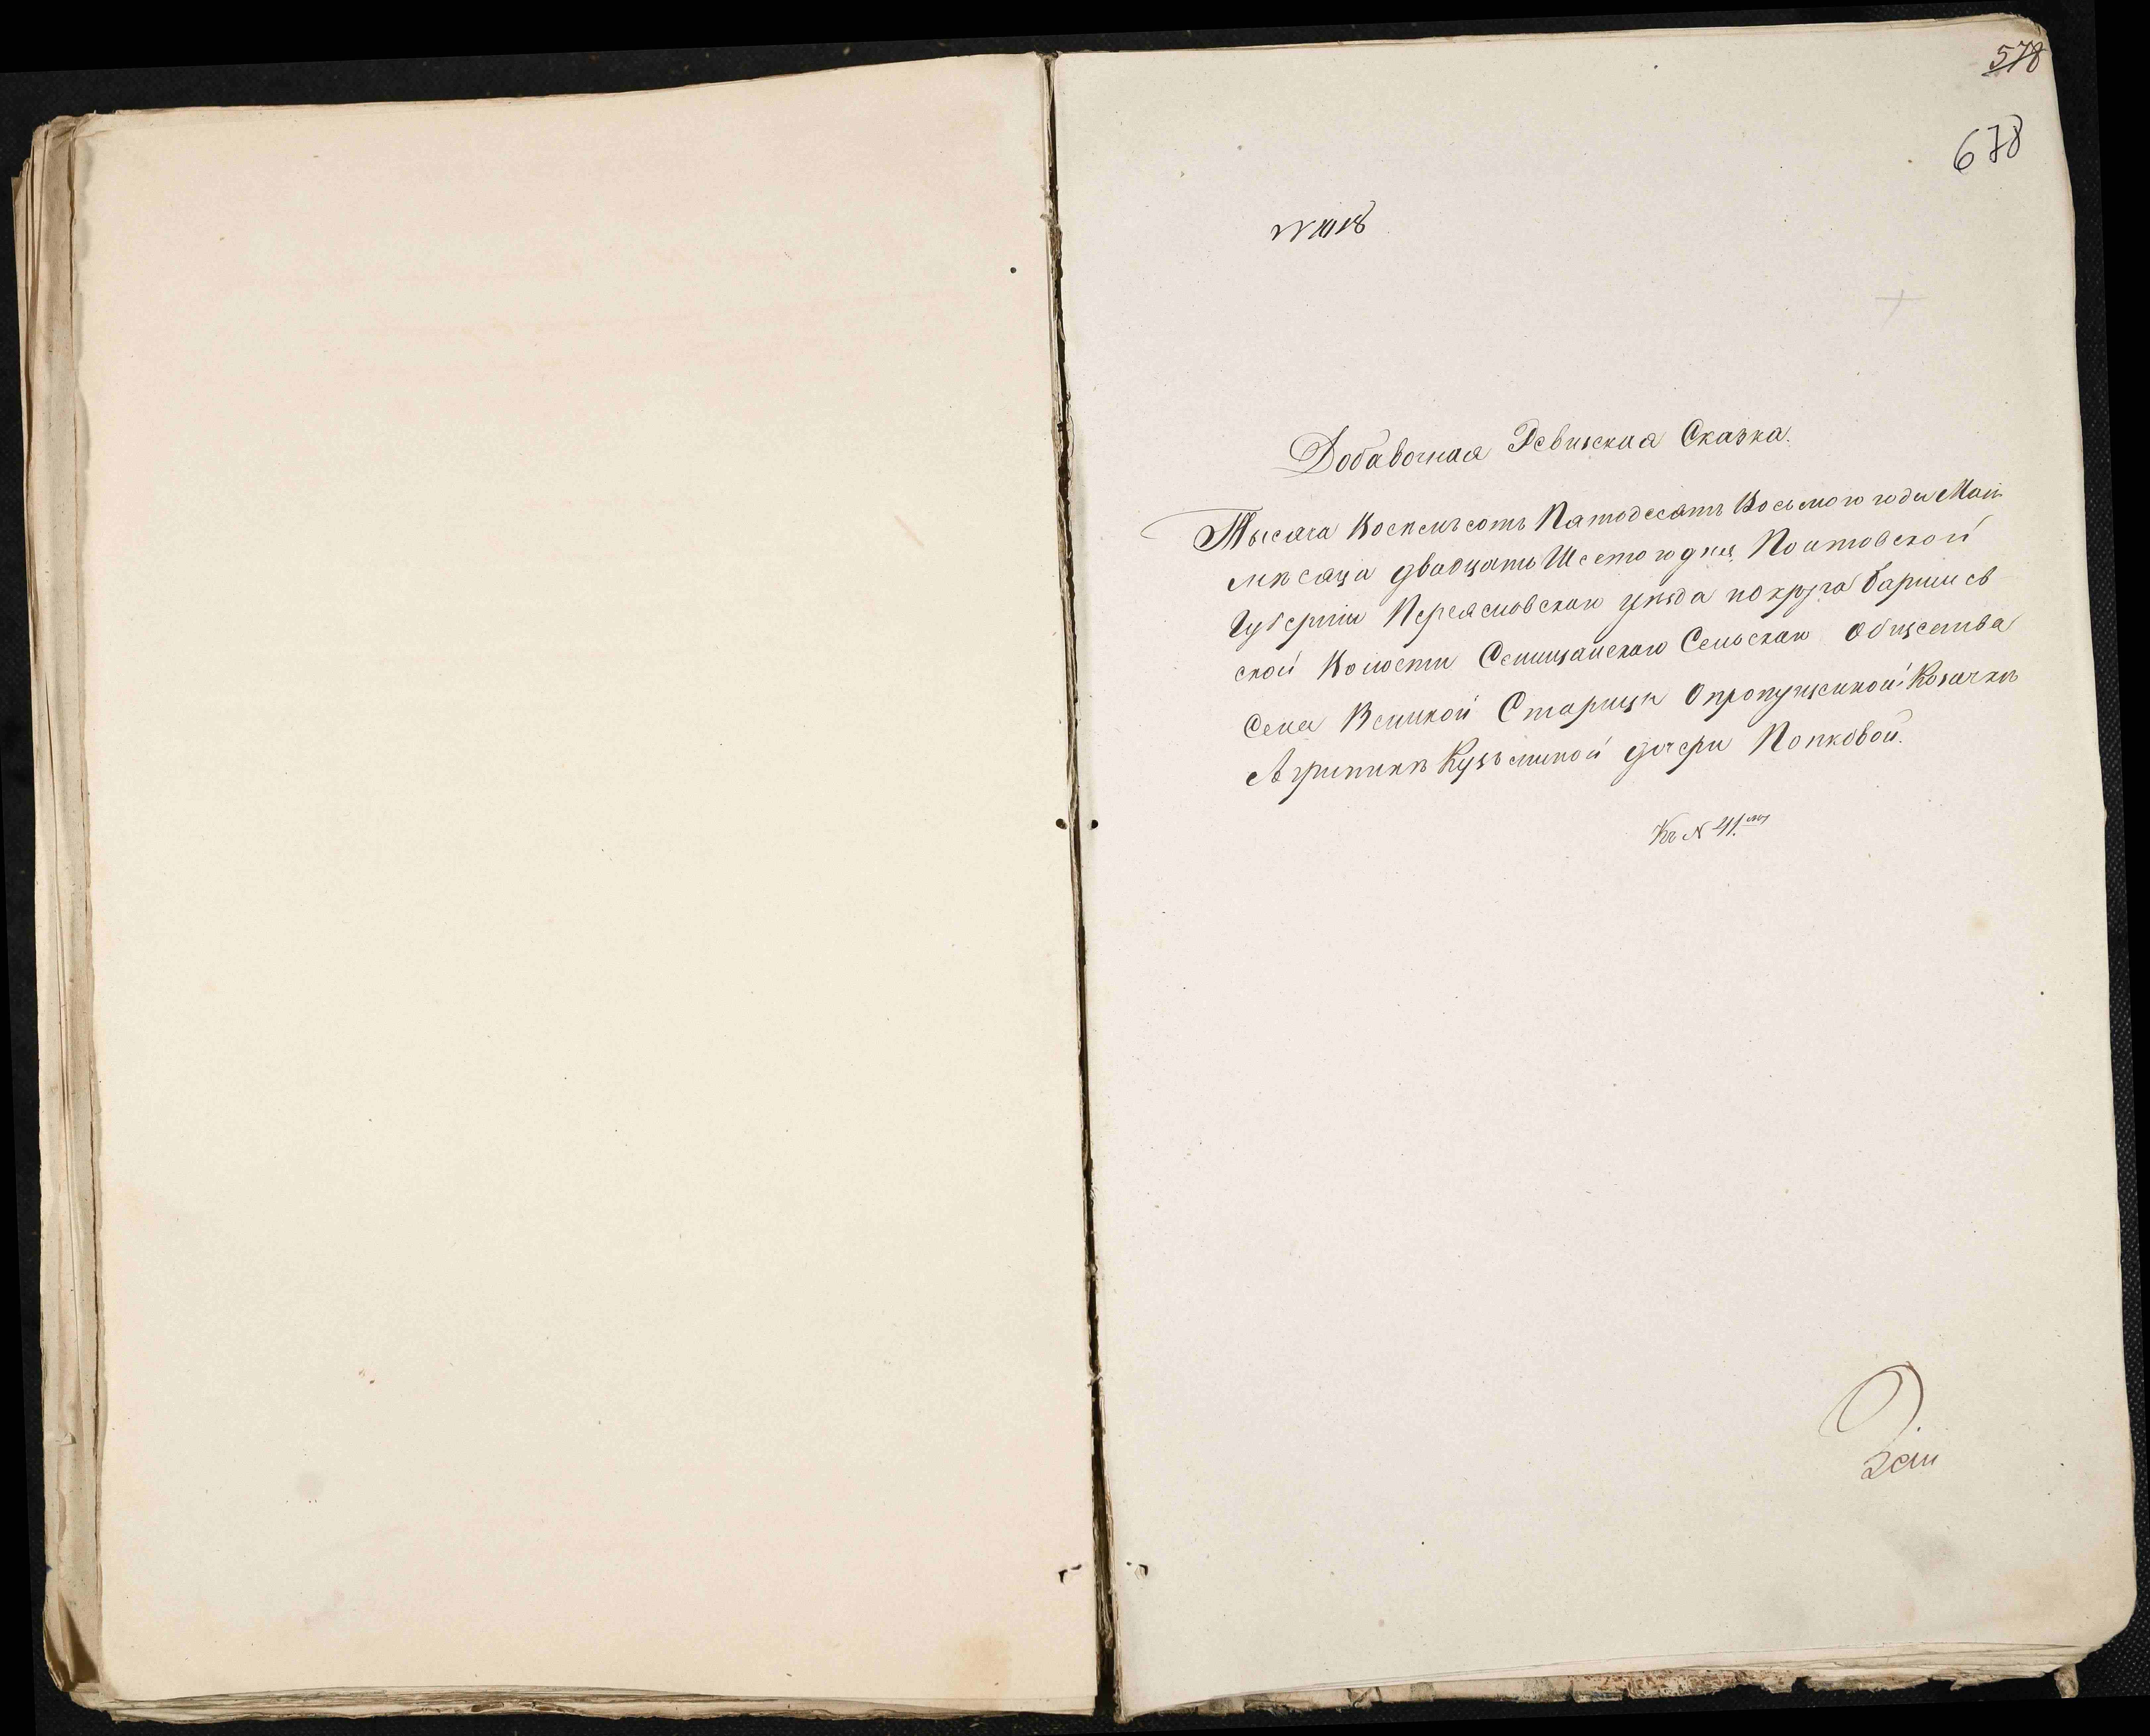 578
678
N 1018
Добавочная Ревизская Сказка.
Тысяча Восемьсотъ Пятодесятъ Восьмого года Маія
мѣсяца двадцать Шестого дня, Полтавской
Губерніи Переясловскаго уѣзда и округа Баришев
ской Волости Селищанскаго Сельскаго Общества
Села Великой Старицѣ О пропущенной Козачкѣ
Агрипинѣ Кузьминой дочери Попковой.
Къ N 41.му